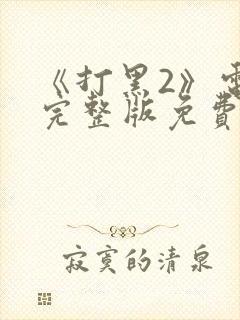 《打黑2》电
完整版免费
寂寞的清泉